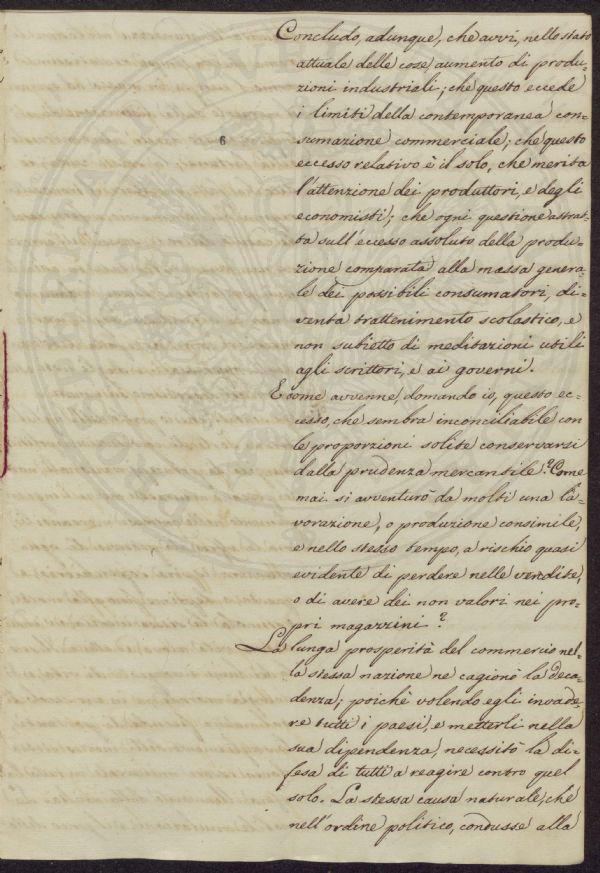 Concludo, adunque, che avvi, nello stato
attuale delle cose, aumento di produ-
zioni industriali; che questo eccede
i limiti della contemporanea con-
sumazione commerciale; che questo
eccesso relativo è il solo, che merita
l'attenzione dei produttori, e degli
economisti; che ogni questione astrat-
ta sull'eccesso assoluto della produ-
zione comparata alla massa genera-
le dei possibili consumatori, di-
venta trattenimento scolastico, e
non subietto di meditazioni utili
agli scrittori, e ai governi.
E come avvenne, domando io, questo ec-
cesso, che sembra inconciliabile con
le proporzioni solite conservarsi
dalla prudenza mercantile? Come
mai si avventurò da molti una la-
vorazione, o produzione consimile,
e nello stesso tempo, a rischio quasi
evidente di perdere nelle vendite,
o di avere dei non valori nei pro-
pri magazzini?
La lunga prosperità del commercio nel-
la stessa nazione ne cagionò la deca-
denza; poichè volendo egli invade-
re tutti i paesi, e metterli nella
sua dipendenza, necessitò la di-
fesa di tutti a reagire contro quel
solo. La stessa causa naturale, che
nell'ordine politico, condusse alla
6